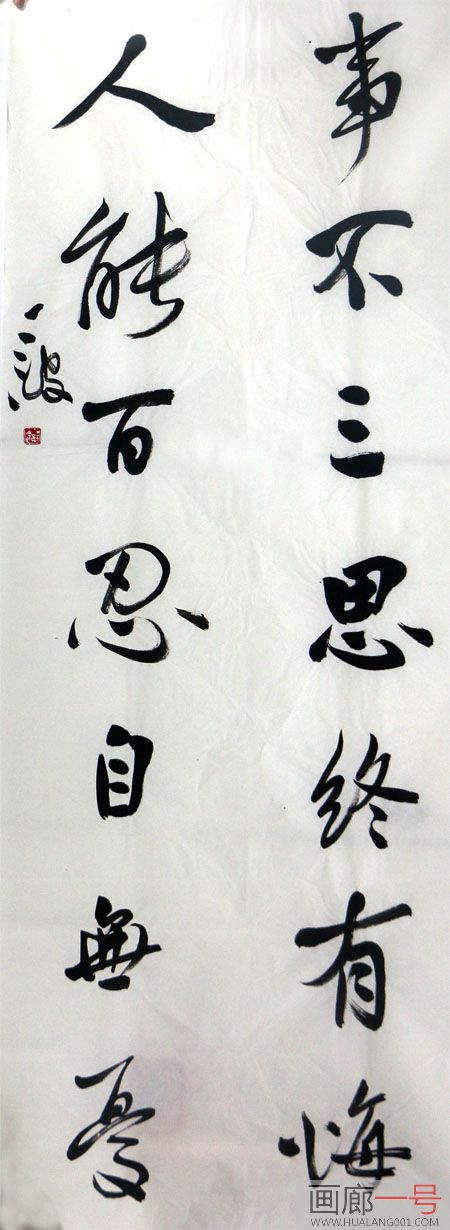 事不三思终有悔
人能百忍自無憂
画廊一号
WWW.HUALANG001.COM